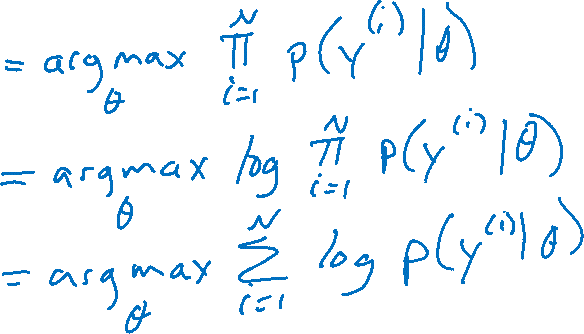 = argmax_θ ∏_{i=1}^{N} p(y^{(i)}|θ)
= argmax_θ log ∏_{i=1}^{N} p(y^{(i)}|θ)
= argmax_θ ∑_{i=1}^{N} log p(y^{(i)}|θ)